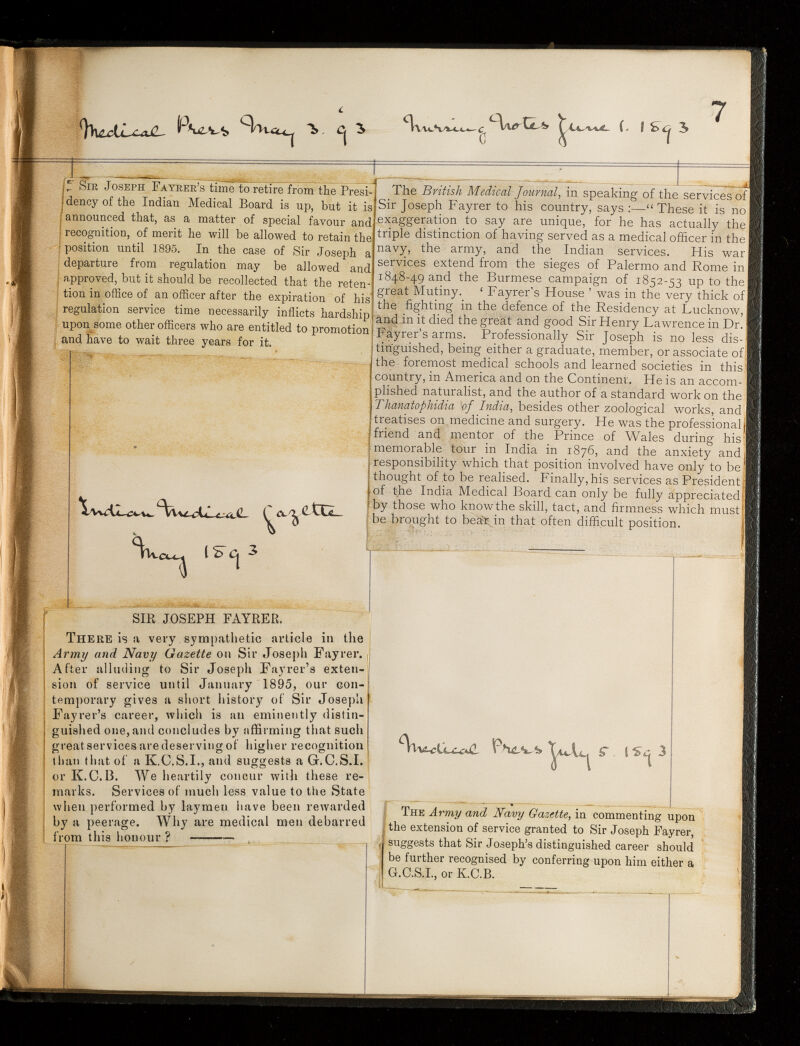 7
Medical Press May 3. 93
SIR JOSEPH FAYRER'S time to retire from the Presi-
dency of the Indian Medical Board is up, but it is
announced that, as a matter of special favour and
recognition, of merit he will be allowed to retain the
position until 1895. In the case of Sir Joseph a
departure from regulation may be allowed and
approved, but it should be recollected that the reten-
tion in office of an officer after the expiration of his
regulation service time necessarily inflicts hardship
upon some other officers who are entitled to promotion
and have to wait three years for it.
Indian Medical Gazette
May 1893
SIR JOSEPH FAYRER.
THERE is a very sympathetic article in the
Army and Navy Gazette on Sir Joseph Fayrer.
After alluding to Sir Joseph Fayrer's exten-
sion of service until January 1895, our con-
temporary gives a short history of Sir Joseph
Fayrer's career, which is an eminently distin-
guished one, and concludes by affirming that such
great services are deserving of higher recognition
than that of a K.C.S.I., and suggests a G.C.S.I.
or K.C.B. We heartily concur with these re-
marks. Services of much less value to the State
when performed by laymen have been rewarded
by a peerage. Why are medical men debarred
from this honour?
Nursing Notes June 1. 1893
The British Medical Journal, in speaking of the services of
Sir Joseph Fayrer to his country, says :—“ These it is no
exaggeration to say are unique, for he has actually the
triple distinction of having served as a medical officer in the
navy, the army, and the Indian services. His war
services extend from the sieges of Palermo and Rome in
1848-49 and the Burmese campaign of 1852-53 up to the
great Mutiny. ‘ Fayrer's House ’ was in the very thick of
the fighting in the defence of the Residency at Lucknow,
and in it died the great and good Sir Henry Lawrence in Dr.
Fayrer's arms. Professionally Sir Joseph is no less dis-
tinguished, being either a graduate, member, or associate of
the foremost medical schools and learned societies in this
country, in America and on the Continent. He is an accom-
plished naturalist, and the author of a standard work on the
Thanatophidia of India, besides other zoological works, and
treatises on medicine and surgery. He was the professional
friend and mentor of the Prince of Wales during his
memorable tour in India in 1876, and the anxiety and
responsibility which that position involved have only to be
thought of to be realised. Finally, his services as President
of the India Medical Board can only be fully appreciated
by those who know the skill, tact, and firmness which must
be brought to bear in that often difficult position.
Medical Press July 5. 1893
THE Army and Navy Gazette, in commenting upon
the extension of service granted to Sir Joseph Fayrer,
suggests that Sir Joseph's distinguished career should
be further recognised by conferring upon him either a
G.C.S.I., or K.C.B.